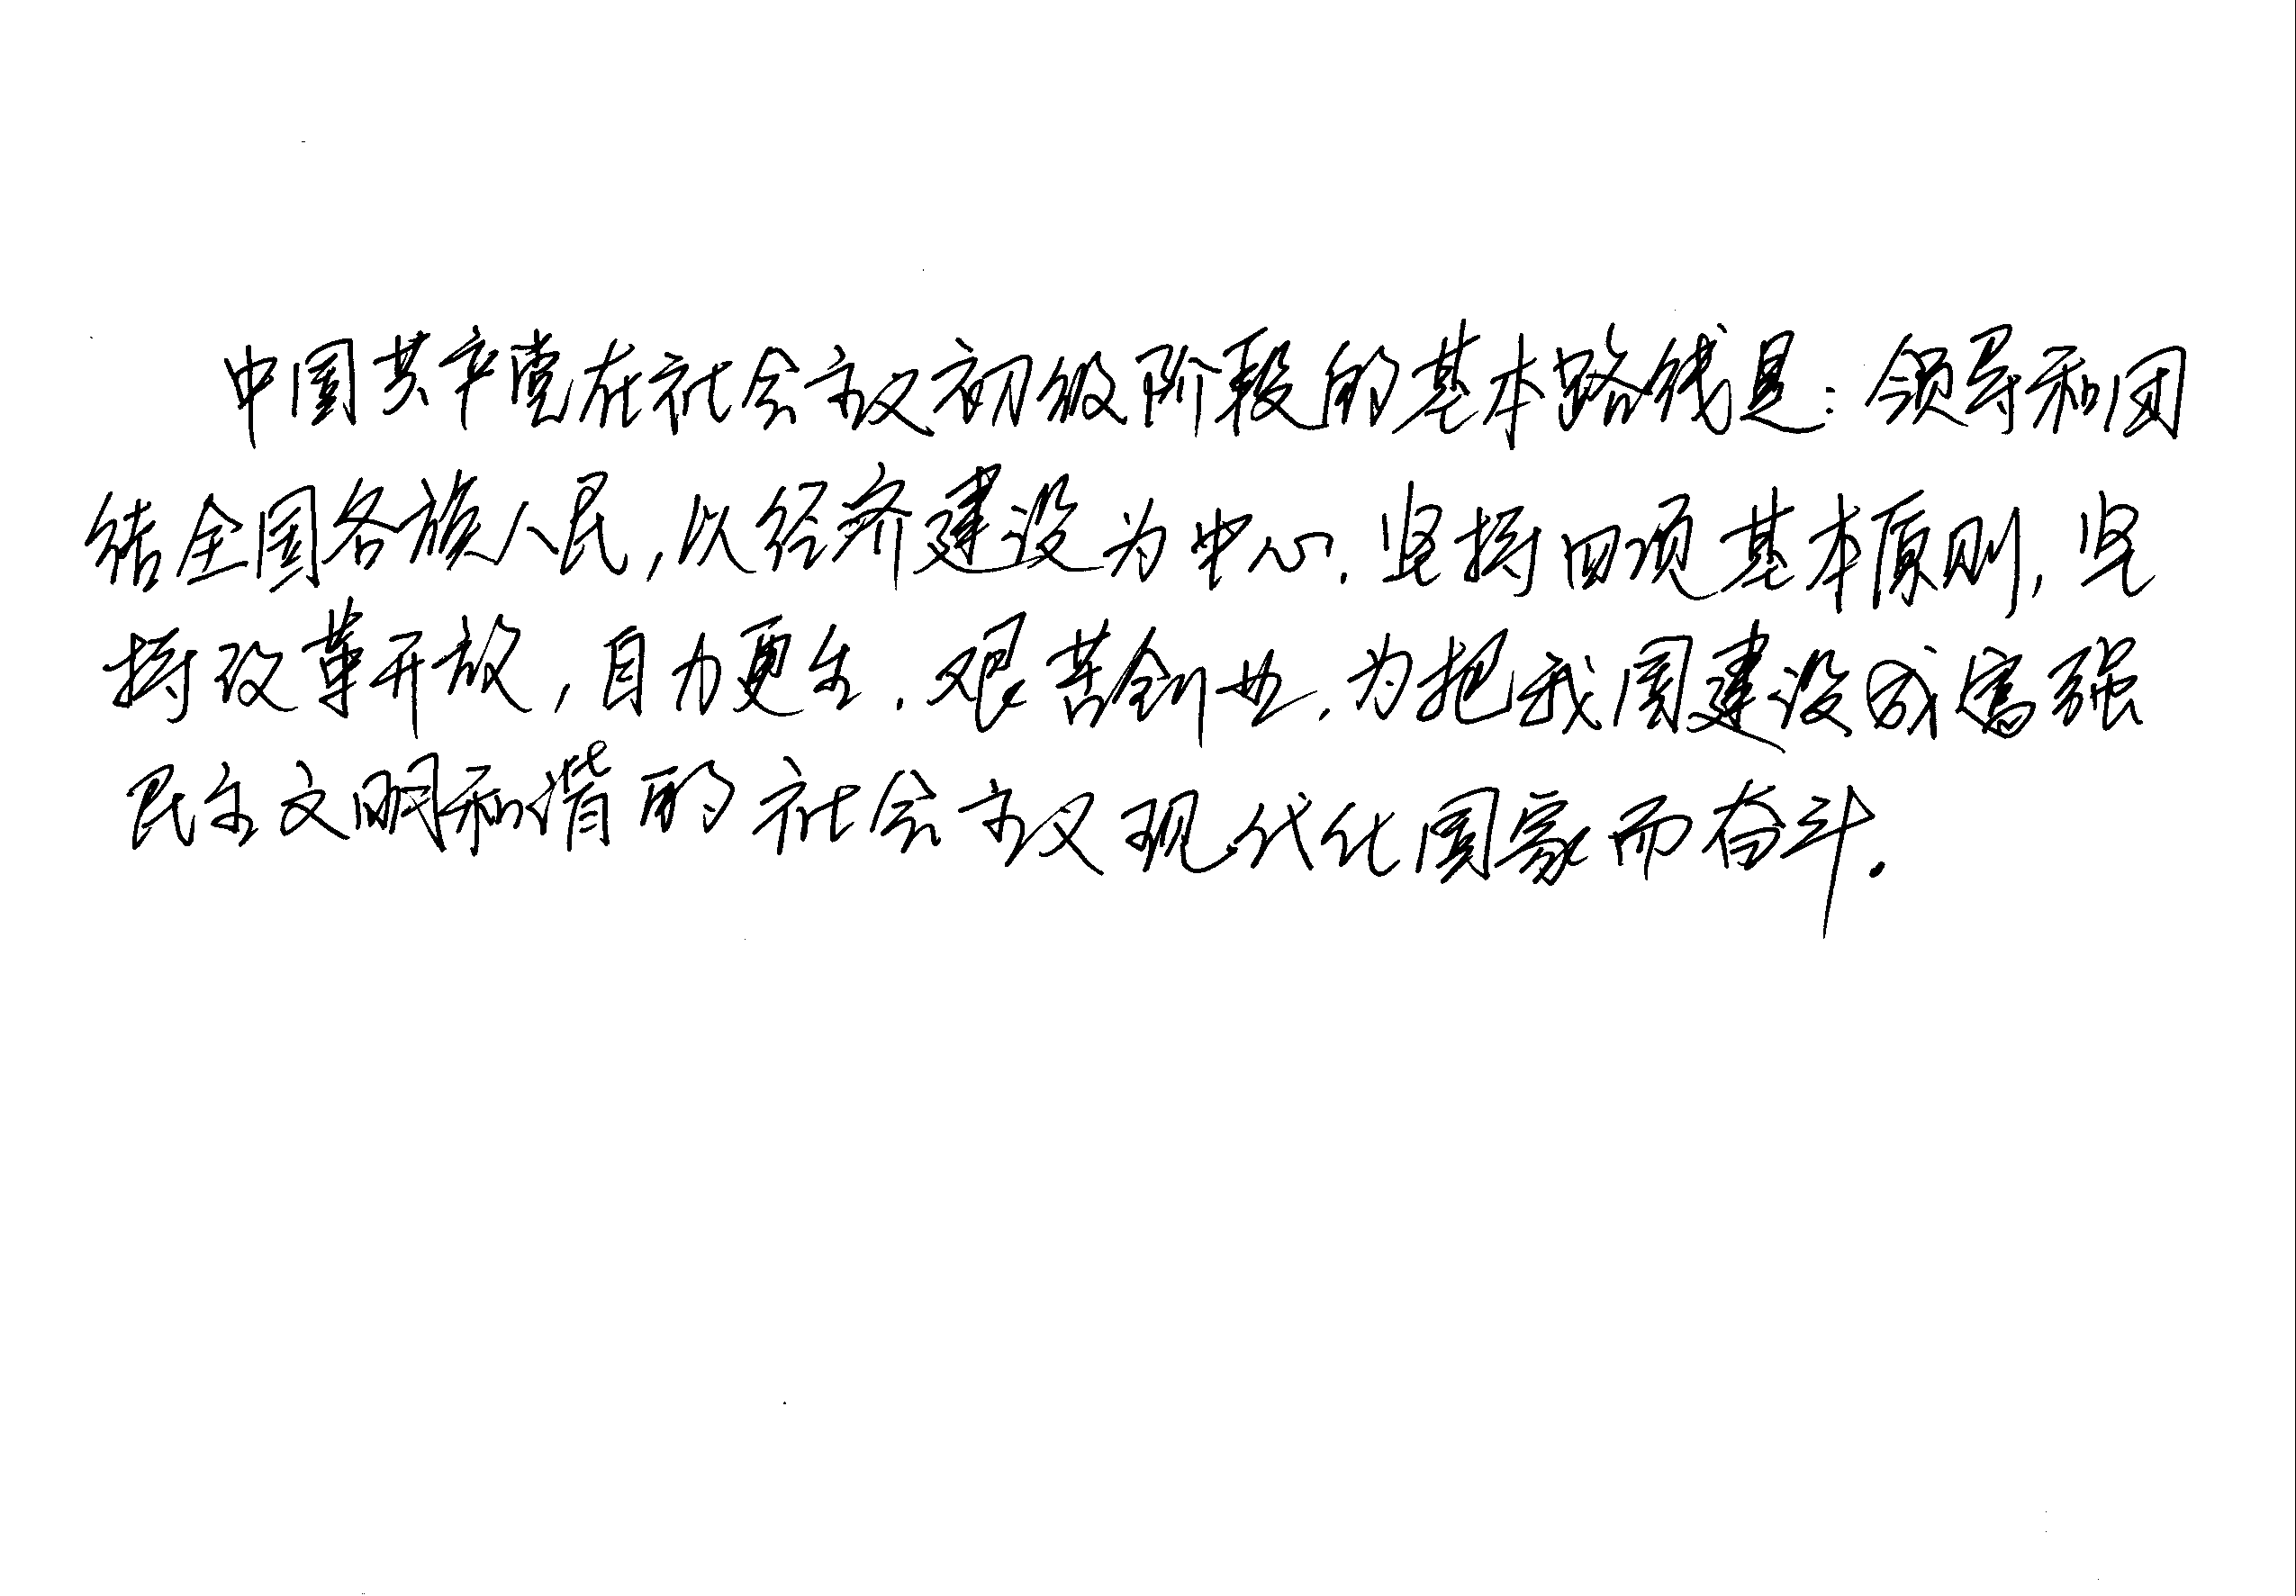 中国共产党在社会主义初级阶段的基本路线是：领导和团
结全国各族人民，以经济建设为中心，坚持四项基本原则，坚
持改革开放，自力更生，艰苦创业，为把我国建设成富强
民主文明和谐的社会主义现代化国家而奋斗.